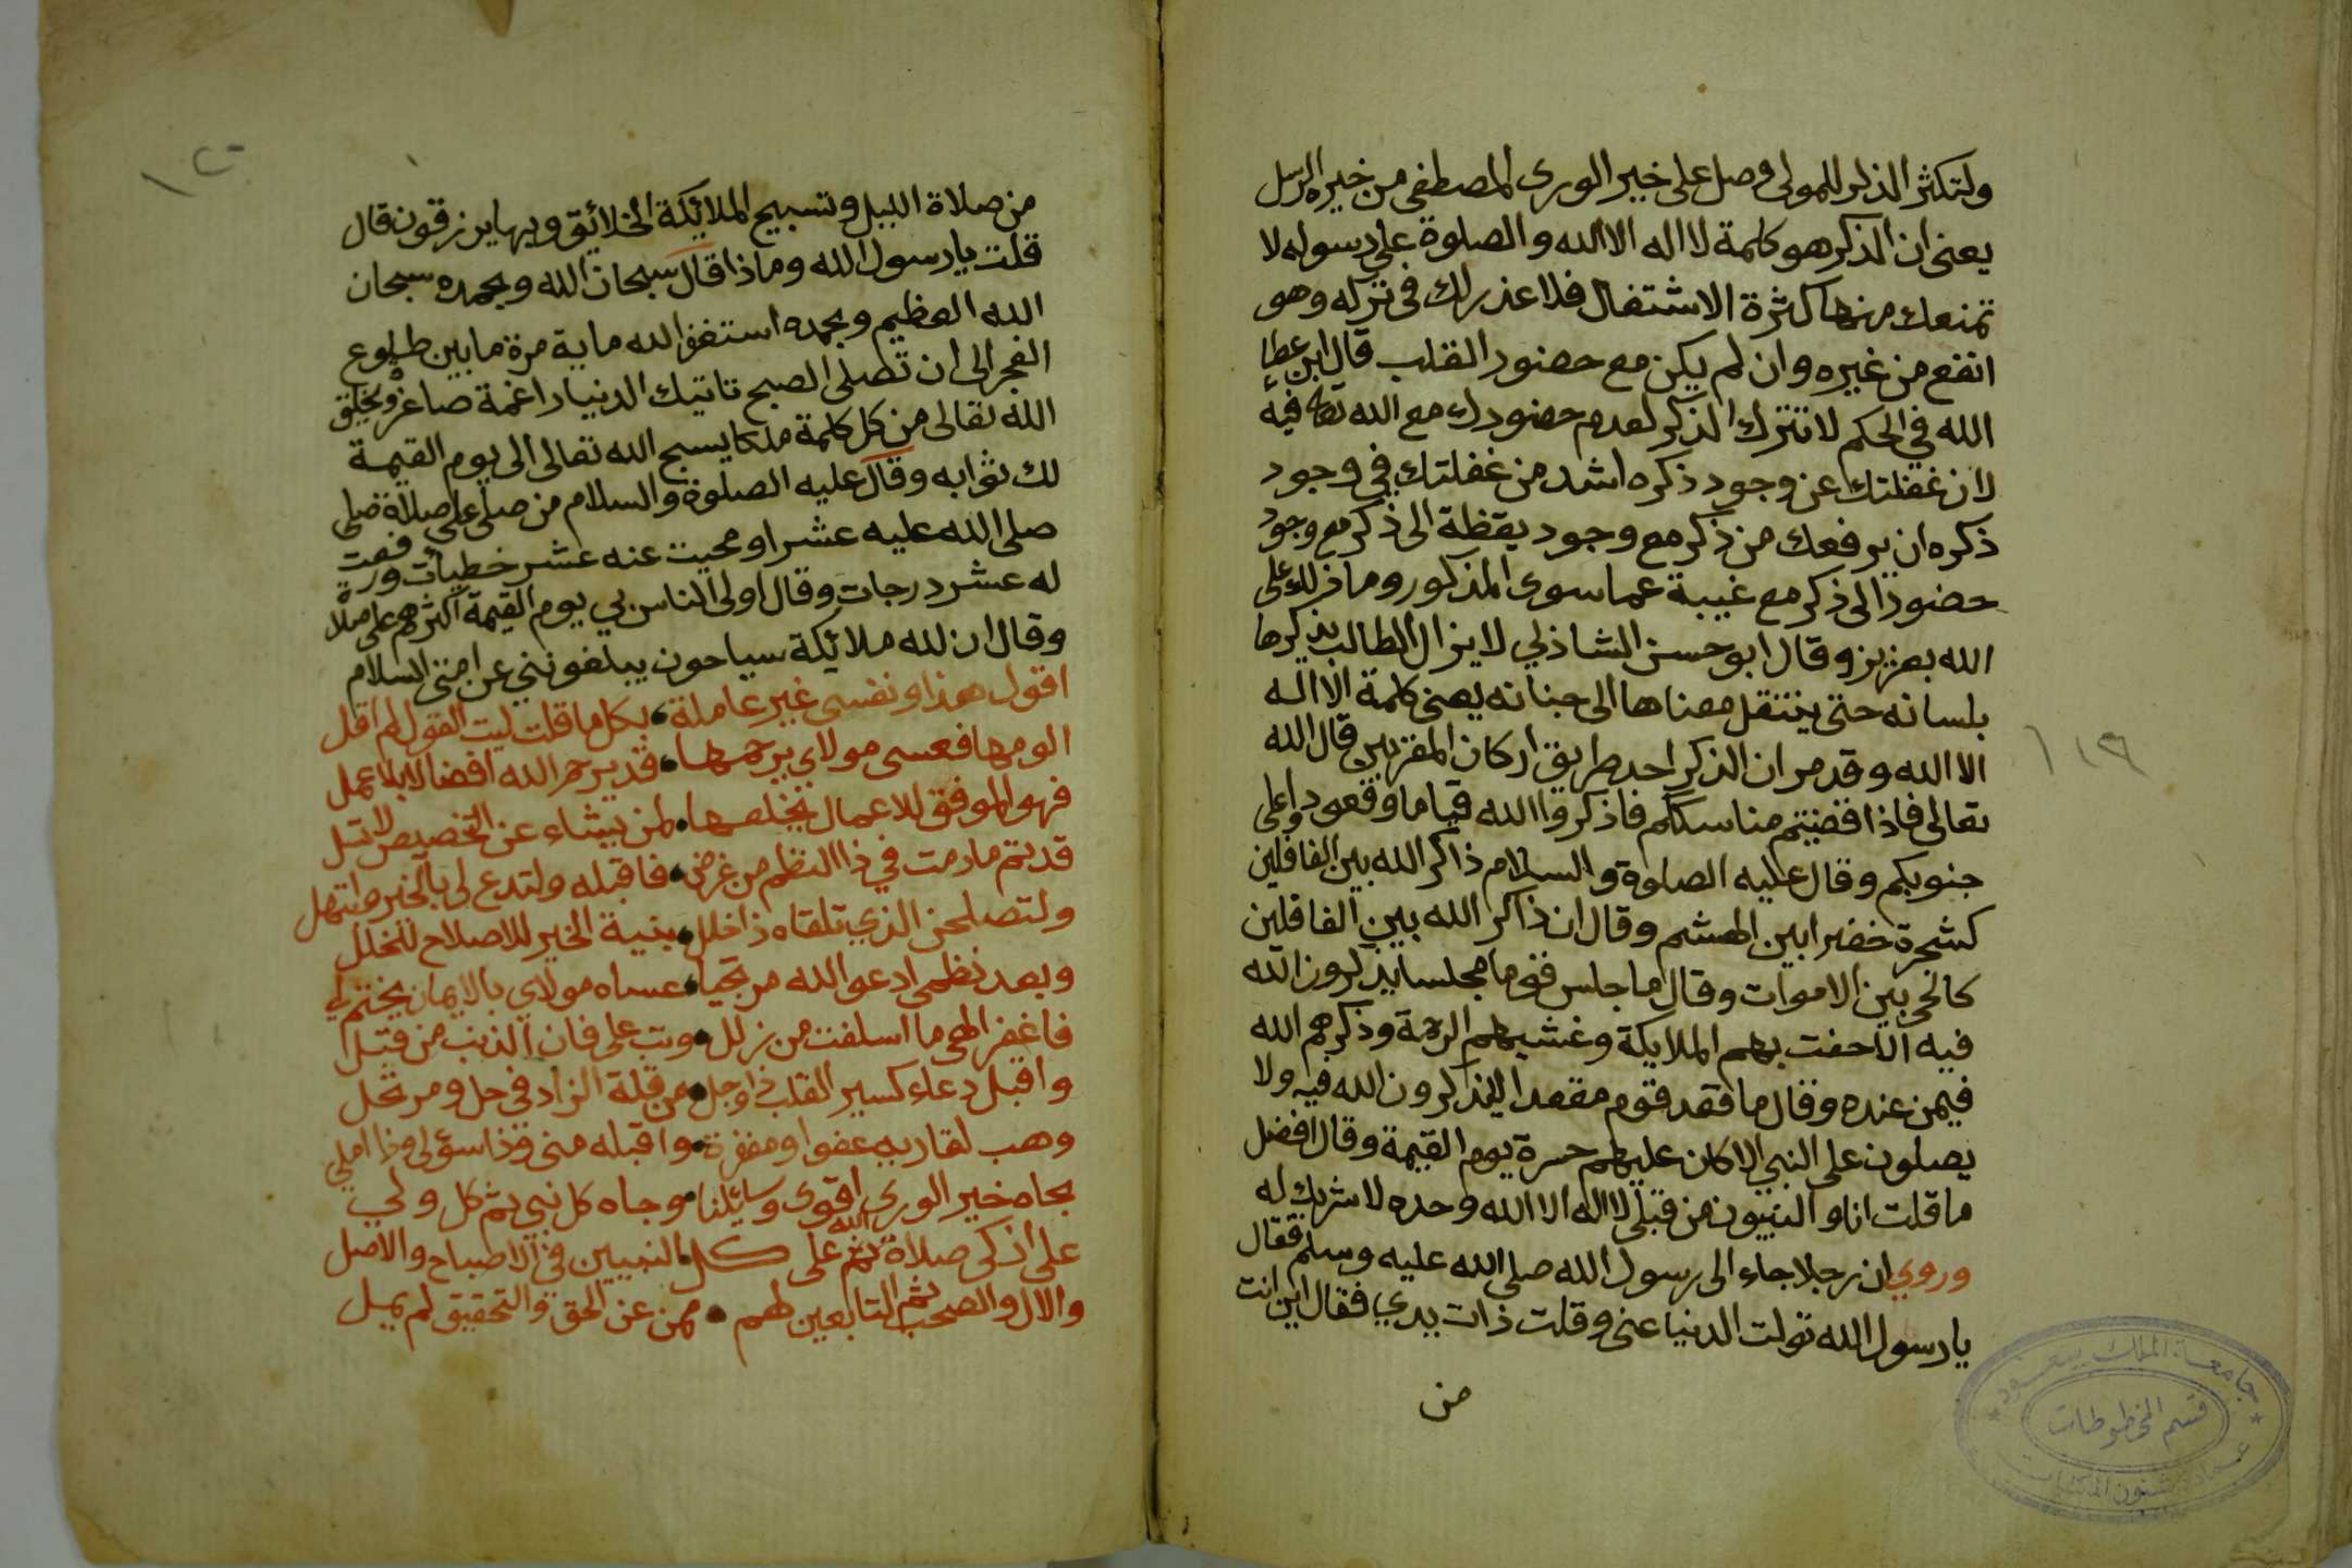 ولتكثر الذكر للمولى وصل على خير الورى المصطفى من خيره الرسل
يعنى ان الذكر هو كلمة لا اله الا الله والصلوة على رسوله لا
تمنعك منهما كثرة الاشتغال فلا عذر لك فى تركه وهو
انفع من غيره وان لم يكن مع حضور القلب قال ابن عطا
الله في الحكم لا تترك الذكر لعدم حضورك مع الله تعا فيه
لان غفلتك عن وجود ذكره اشد من غفلتك في وجود
ذكره ان يرفعك من ذكر مع وجود يقظة الى ذكر مع وجود
حضور الى ذكر مع غيبة عما سوى المذكور وما ذلك على
الله بعزيز وقال ابو حسن الشاذلي لا يزال الطالب يذكرها
بلسانه حتى ينتقل معناها الى جنانه يعنى كلمة لا اله
الا الله وقد مر ان الذكر احد طريق اركان المقربين قال الله
تعالى فاذا قضيتم مناسككم فاذكروا الله قياما وقعودا وعلى
جنوبكم وقال عليه الصلوة والسلام ذاكر الله بين الغافلين
كشجرة خضرا بين الهشم وقال ان ذاكر الله بين الغافلين
كالحي بين الاموات وقال ما جلس قوما مجلسا يذكرون الله
فيه الا حفت بهم الملايكة وغشيهم الرحمة وذكرهم الله
فيمن عنده وقال ما قعد قوم مقعدا لا يذكرون الله فيه ولا
يصلون على النبي الا كان عليهم حسرة يوم القيمة وقال افضل
ما قلت انا والنبيون من قبلى لا اله الا الله وحده لا شريك له
وروي ان رجلا جاء الى رسول الله صلى الله عليه وسلم فقال
يا رسول الله تولت الدنيا عنى وقلت ذات يدي فقال اين انت
من
١١٩
جامعة الملك سعود
قسم المخطوطات
عمادة شئون المكتبات
١٢٠
من صلاة الليل وتسبيح الملائكة الخلائق وبها يرزقون قال
قلت يا رسول الله وماذا قال سبحان الله وبحمده سبحان
الله العظيم وبحمده استغفر الله ماية مرة ما بين طلوع
الفجر الى ان تصلى الصبح تاتيك الدنيا راغمة صاغرة ويخلق
الله تعالى من كل كلمة ملكا يسبح الله تعالى الى يوم القيمة
لك ثوابه وقال عليه الصلوة والسلام من صلى على صلاة صلى
صلى الله عليه عشرا ومحيت عنه عشر خطيات ورفعت
له عشر درجات وقال اولى الناس بي يوم القيمة اكثرهم على صلاة
وقال ان لله ملائكة سياحون يبلغوننى عن امتى السلام
اقول هذا ونفسى غير عاملة بكل ما قلت ليت القول لم اقل
الومها فعسى مولاي يرحمها قد يرحم الله افضالا بلا عمل
فهو الموفق للاعمال يخلصها لمن يشاء عن التخصيص لا تسل
قد تم ما رمت في ذا النظم من غرض فاقبله ولتدع لى بالخير وابتهل
ولتصلحن الذي تلقاه ذا خلل بنية الخير للاصلاح للخلل
وبعد نظمى ادعو الله مرتجيا عساه مولاي بالايمان يختم لي
فاغفر الهى ما اسلفت من زلل وتب على فان الذنب من قبل
واقبل دعاء كسير القلب ذا وجل من قلة الزاد فى حل ومرتحل
وهب لقاريه عفوا ومغفرة واقبله منى فذا سؤلى وذا املي
بجاه خير الورى اقوى وسائلنا وجاه كل نبي ثم كل ولي
على ازكى صلاة الله ثم على كل النبيين فى الاصباح والاصل
والال والصحب ثم التابعين لهم ممن عن الحق والتحقيق لم يمل